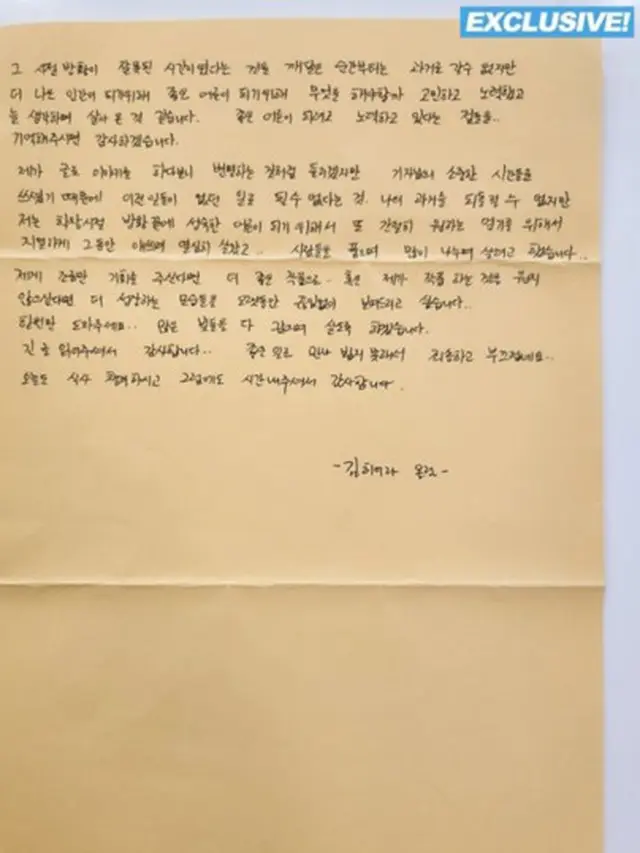 EXCLUSIVE!
그 시절 방황이 잘못된 시간이었다는 것을 깨달은 순간부터는 과거로 갈수 없지만
더 나은 인간이 되기위해 좋은 어른이 되기위해 무엇을 해야할까 고민하고 노력했고
늘 생각하며 살아 온 것 같습니다. 좋은 어른이 되려고 노력하고 있다는 점들을..
기억해주시면 감사하겠습니다.
제가 글로 이야기를 하다보니 변명하는 것처럼 들리겠지만 기자님의 소중한 시간들을
쓰셨기 때문에 이런일들이 없던 일로 될수 없다는 것. 나의 과거를 되돌릴 수 없지만
저는 학창시절 방황 끝에 성숙한 어른이 되기 위해서 또 간절히 원하는 연기를 위해서
지열하게 그동안 애쓰며 열심히 살았고.. 사람들을 품으며 많이 나누며 살려고 했습니다..
제게 조금만 기회를 주신다면 더 좋은 작품으로.. 혹은 제가 작품 하는 것을 원치
않으신다면 더 성장하는 모습들을 오랫동안 끊임없이 보여드리고 싶습니다..
한번만 도와주세요.. 많은 빛들을 다 갚으며 살도록 하겠습니다.
긴 글 읽어주셔서 감사합니다.. 좋은 일로 만나 뵙지 못해서 죄송하고 부끄럽네요..
오늘도 식사 못하시고 그럼에도 시간내주셔서 감사합니다.
-김히어라 올림-